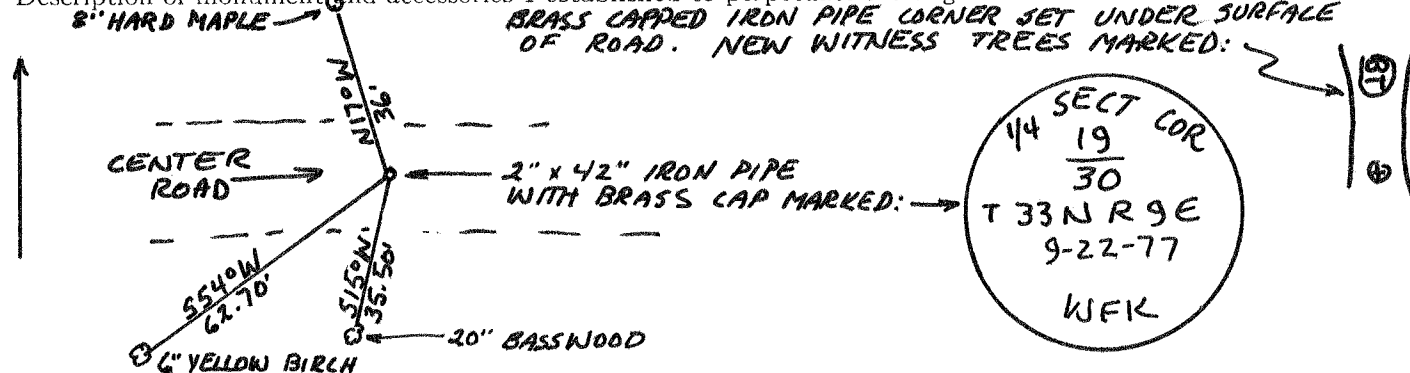 8" HARD MAPLE
BRASS CAPPED IRON PIPE CORNER SET UNDER SURFACE
OF ROAD. NEW WITNESS TREES MARKED:
BT
N17°W
36'
CENTER
ROAD
2" x 42" IRON PIPE
WITH BRASS CAP MARKED:
1/4 SECT COR
19
30
T 33N R 9E
9-22-77
WFK
S54°W
62.70'
S15°W
35.50'
20" BASSWOOD
6" YELLOW BIRCH